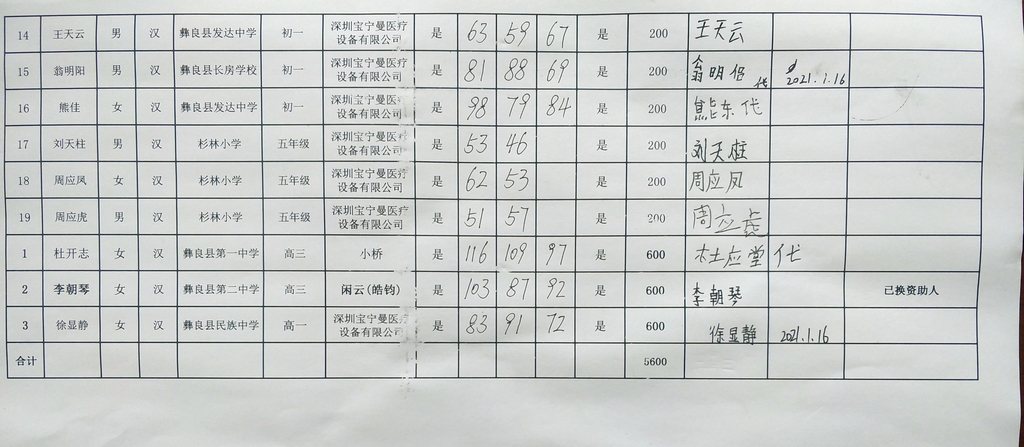 14 王天云 男 汉 彝良县发达中学 初一 深圳宝宁曼医疗设备有限公司 是 63 59 67 是 200 王天云
15 翁明阳 男 汉 彝良县长房学校 初一 深圳宝宁曼医疗设备有限公司 是 81 88 69 是 200 翁明侣 代 2021.1.16
16 熊佳 女 汉 彝良县发达中学 初一 深圳宝宁曼医疗设备有限公司 是 98 79 84 是 200 熊东代
17 刘天柱 男 汉 杉林小学 五年级 深圳宝宁曼医疗设备有限公司 是 53 46 是 200 刘天柱
18 周应凤 女 汉 杉林小学 五年级 深圳宝宁曼医疗设备有限公司 是 62 53 是 200 周应凤
19 周应虎 男 汉 杉林小学 五年级 深圳宝宁曼医疗设备有限公司 是 51 57 是 200 周应虎
1 杜开志 女 汉 彝良县第一中学 高三 小桥 是 116 109 97 是 600 杜应堂 代
2 李朝琴 女 汉 彝良县第二中学 高三 闲云(皓钧) 是 103 87 92 是 600 李朝琴 已换资助人
3 徐显静 女 汉 彝良县民族中学 高一 深圳宝宁曼医疗设备有限公司 是 83 91 72 是 600 徐显静 2021.1.16
合计 5600